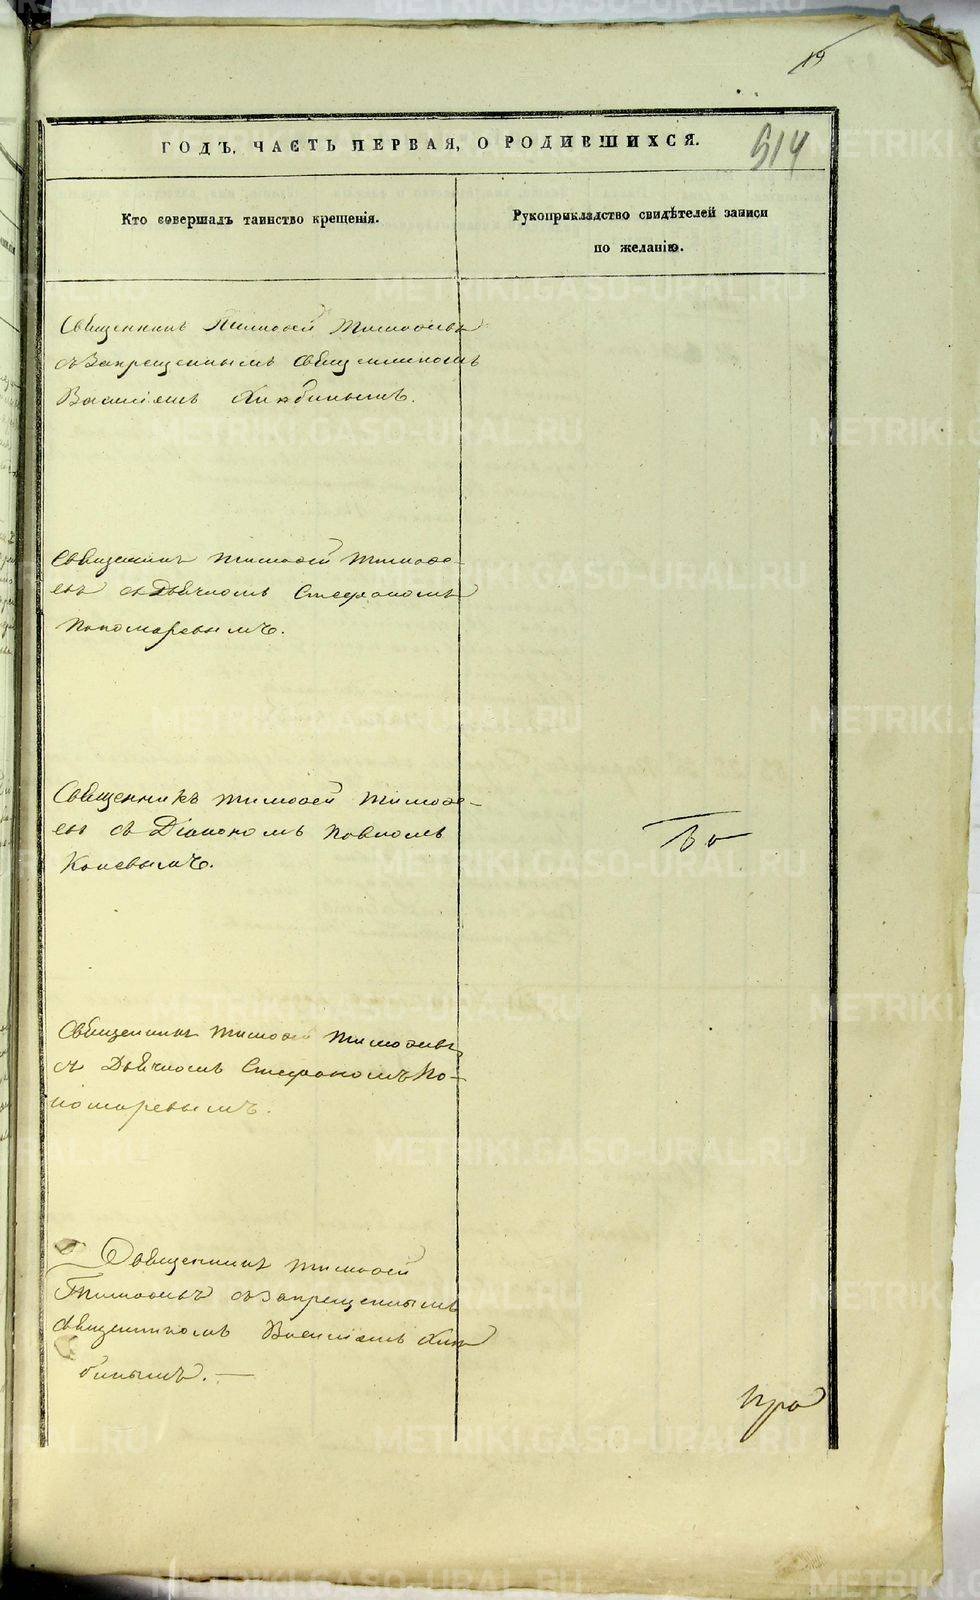 19
ГОДЪ, ЧАСТЬ ПЕРВАЯ, О РОДИВШИХСЯ.
514
Кто совершалъ таинство крещенія.
Рукоприкладство свидѣтелей записи
по желанію.
Священникъ Тимоѳей Тимоѳеевъ
съ Запрещеннымъ Священникомъ
Василіемъ
Священникъ Тимоѳей Тимоѳе-
евъ съ Дьячкомъ Стефаномъ
Пономаревымъ.
Священникъ Тимоѳей Тимоѳе-
евъ съ Діакономъ Павломъ
Коневымъ.
Священникъ Тимоѳей Тимоѳеевъ
съ Дьячкомъ Стефаномъ По-
номаревымъ.
Священникъ Тимоѳей
Тимоѳеевъ съ Запрещеннымъ
Священникомъ Василіемъ
METRIKI.GASO-URAL.RU